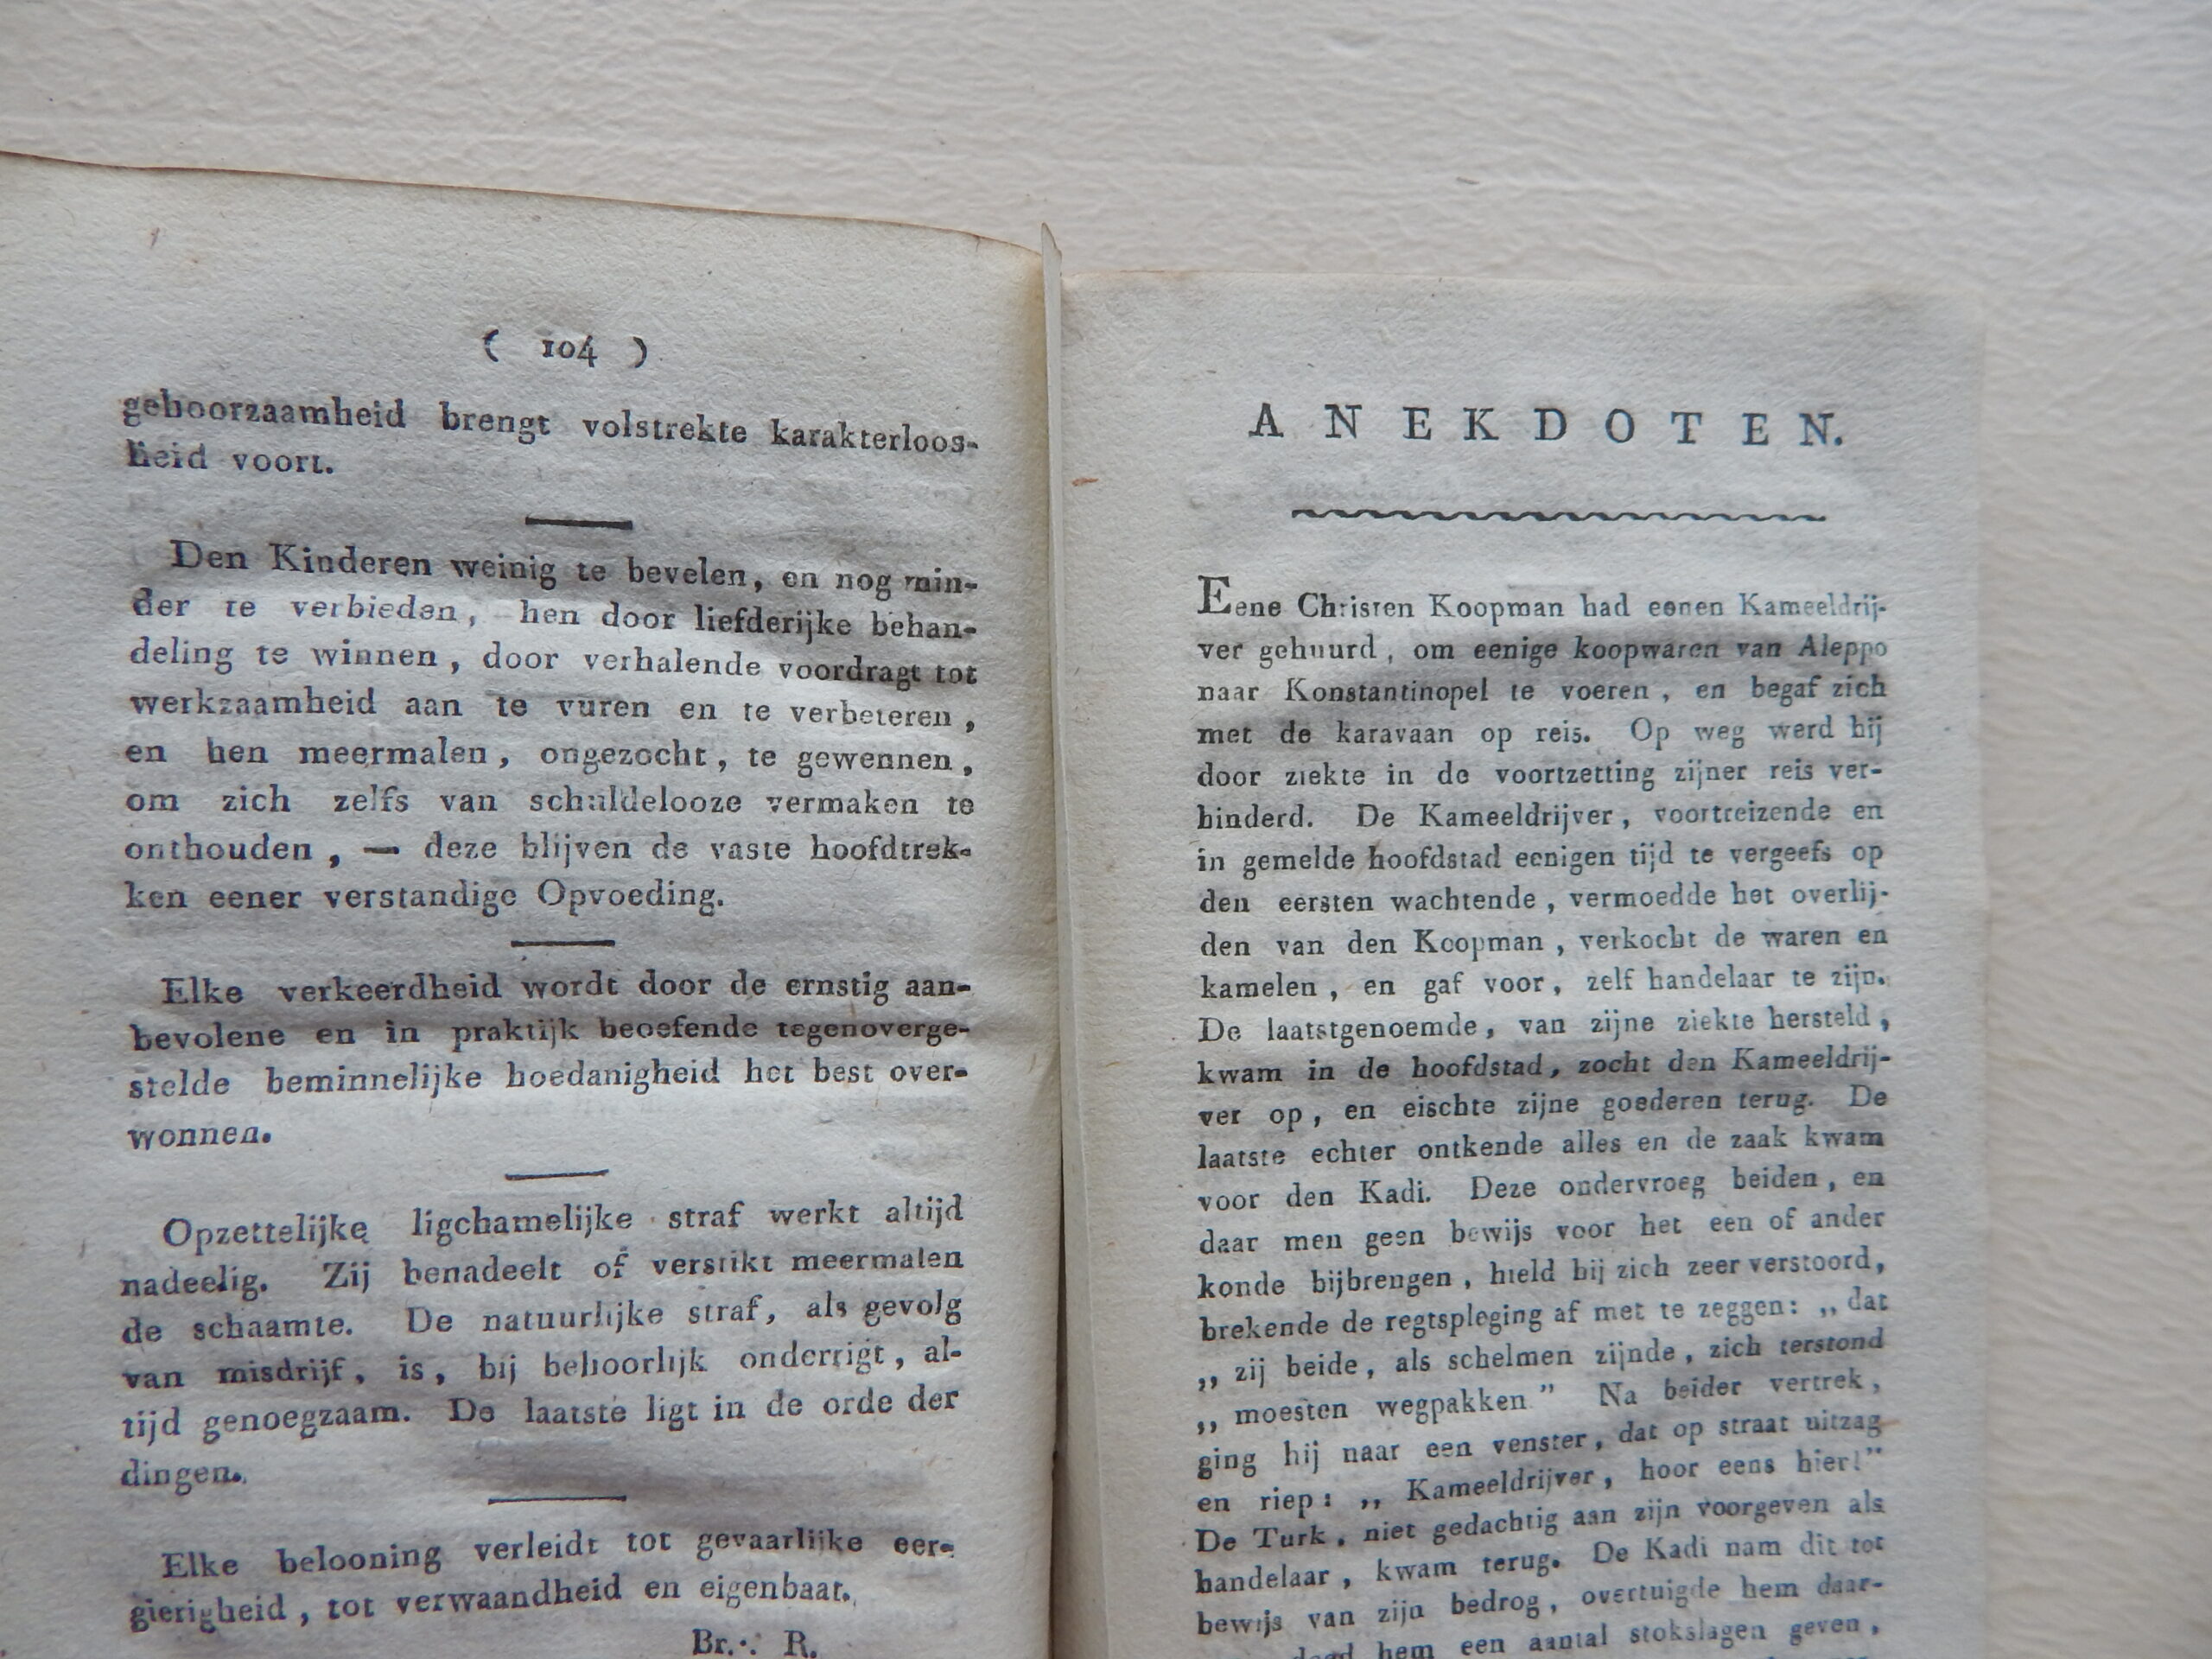 ( 104 )
gehoorzaamheid brengt volstrekte karakterloos-
heid voort.
Den Kinderen weinig te bevelen, en nog min-
der te verbieden, hen door liefderijke behan-
deling te winnen, door verhalende voordragt tot
werkzaamheid aan te vuren en te verbeteren,
en hen meermalen, ongezocht, te gewennen,
om zich zelfs van schuldelooze vermaken te
onthouden, — deze blijven de vaste hoofdtrek-
ken eener verstandige Opvoeding.
Elke verkeerdheid wordt door de ernstig aan-
bevolene en in praktijk beoefende tegenoverge-
stelde beminnelijke hoedanigheid het best over-
wonnen.
Opzettelijke ligchamelijke straf werkt altijd
nadeelig. Zij benadeelt of verstikt meermalen
de schaamte. De natuurlijke straf, als gevolg
van misdrijf, is, bij behoorlijk onderrigt, al-
tijd genoegzaam. De laatste ligt in de orde der
dingen.
Elke belooning verleidt tot gevaarlijke eer-
gierigheid, tot verwaandheid en eigenbaat.
Br.∴ R.
ANEKDOTEN.
Eene Christen Koopman had eenen Kameeldrij-
ver gehuurd, om eenige koopwaren van Aleppo
naar Konstantinopel te voeren, en begaf zich
met de karavaan op reis. Op weg werd hij
door ziekte in de voortzetting zijner reis ver-
hinderd. De Kameeldrijver, voortreizende en
in gemelde hoofdstad eenigen tijd te vergeefs op
den eersten wachtende, vermoedde het overlij-
den van den Koopman, verkocht de waren en
kamelen, en gaf voor, zelf handelaar te zijn.
De laatstgenoemde, van zijne ziekte hersteld,
kwam in de hoofdstad, zocht den Kameeldrij-
ver op, en eischte zijne goederen terug. De
laatste echter ontkende alles en de zaak kwam
voor den Kadi. Deze ondervroeg beiden, en
daar men geen bewijs voor het een of ander
konde bijbrengen, hield hij zich zeer verstoord,
brekende de regtspleging af met te zeggen: „ dat
„ zij beide, als schelmen zijnde, zich terstond
„ moesten wegpakken” Na beider vertrek,
ging hij naar een venster, dat op straat uitzag
en riep: „ Kameeldrijver, hoor eens hier!”
De Turk, niet gedachtig aan zijn voorgeven als
handelaar, kwam terug. De Kadi nam dit tot
bewijs van zijn bedrog, overtuigde hem daar-
deed hem een aantal stokslagen geven,